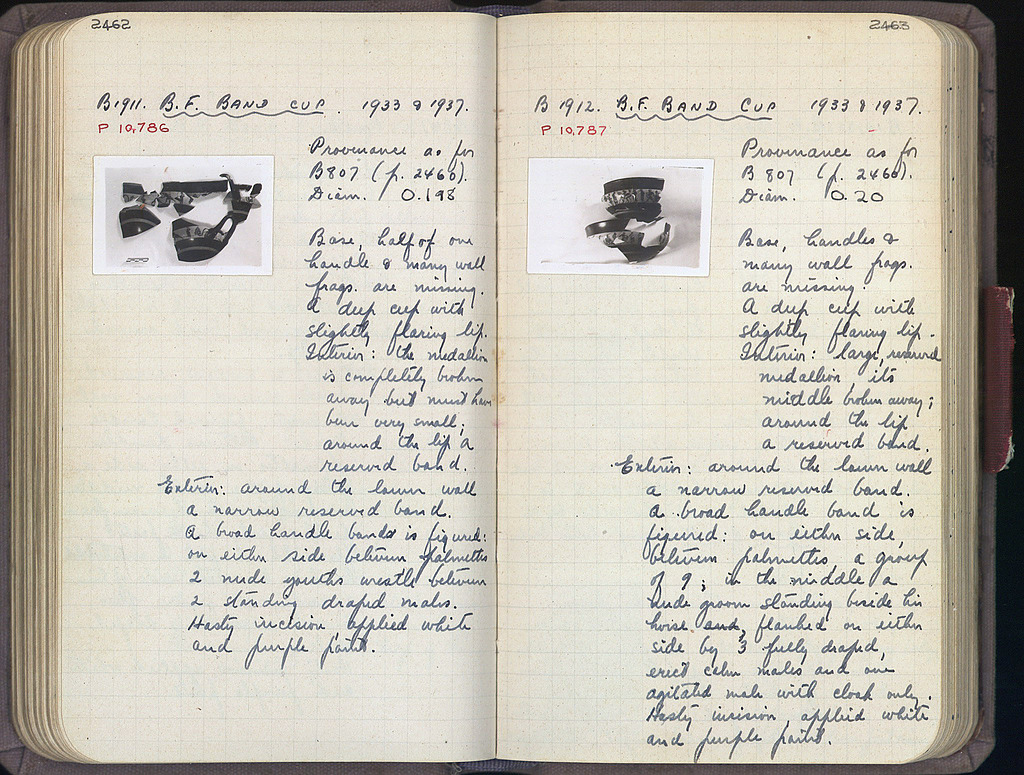 2462
B 1911. B.F. BAND CUP. 1933 & 1937.
P 10,786
Provenance as for
B 807 (p. 2460).
Diam. 0.198
Base, half of one
handle & many wall
frags. are missing.
A deep cup with
slightly flaring lip.
Interior: the medallion
is completely broken
away but must have
been very small;
around the lip a
reserved band.
Exterior: around the lower wall
a narrow reserved band.
A broad handle band is figured:
on either side between palmettes
2 nude youths wrestle between
2 standing draped males.
Hasty incision applied white
and purple paint.
2463
B 1912. B.F. BAND CUP 1933 & 1937.
P 10,787
Provenance as for
B 807 (p. 2460).
Diam. 0.20
Base, handles &
many wall frags.
are missing.
A deep cup with
slightly flaring lip.
Interior: large, reserved
medallion its
middle broken away;
around the lip
a reserved band.
Exterior: around the lower wall
a narrow reserved band.
A broad handle band is
figured: on either side,
between palmettes a group
of 9; in the middle a
nude groom standing beside his
horse and, flanked on either
side by 3 fully draped,
erect calm males and one
agitated male with cloak only.
Hasty incision, applied white
and purple paint.